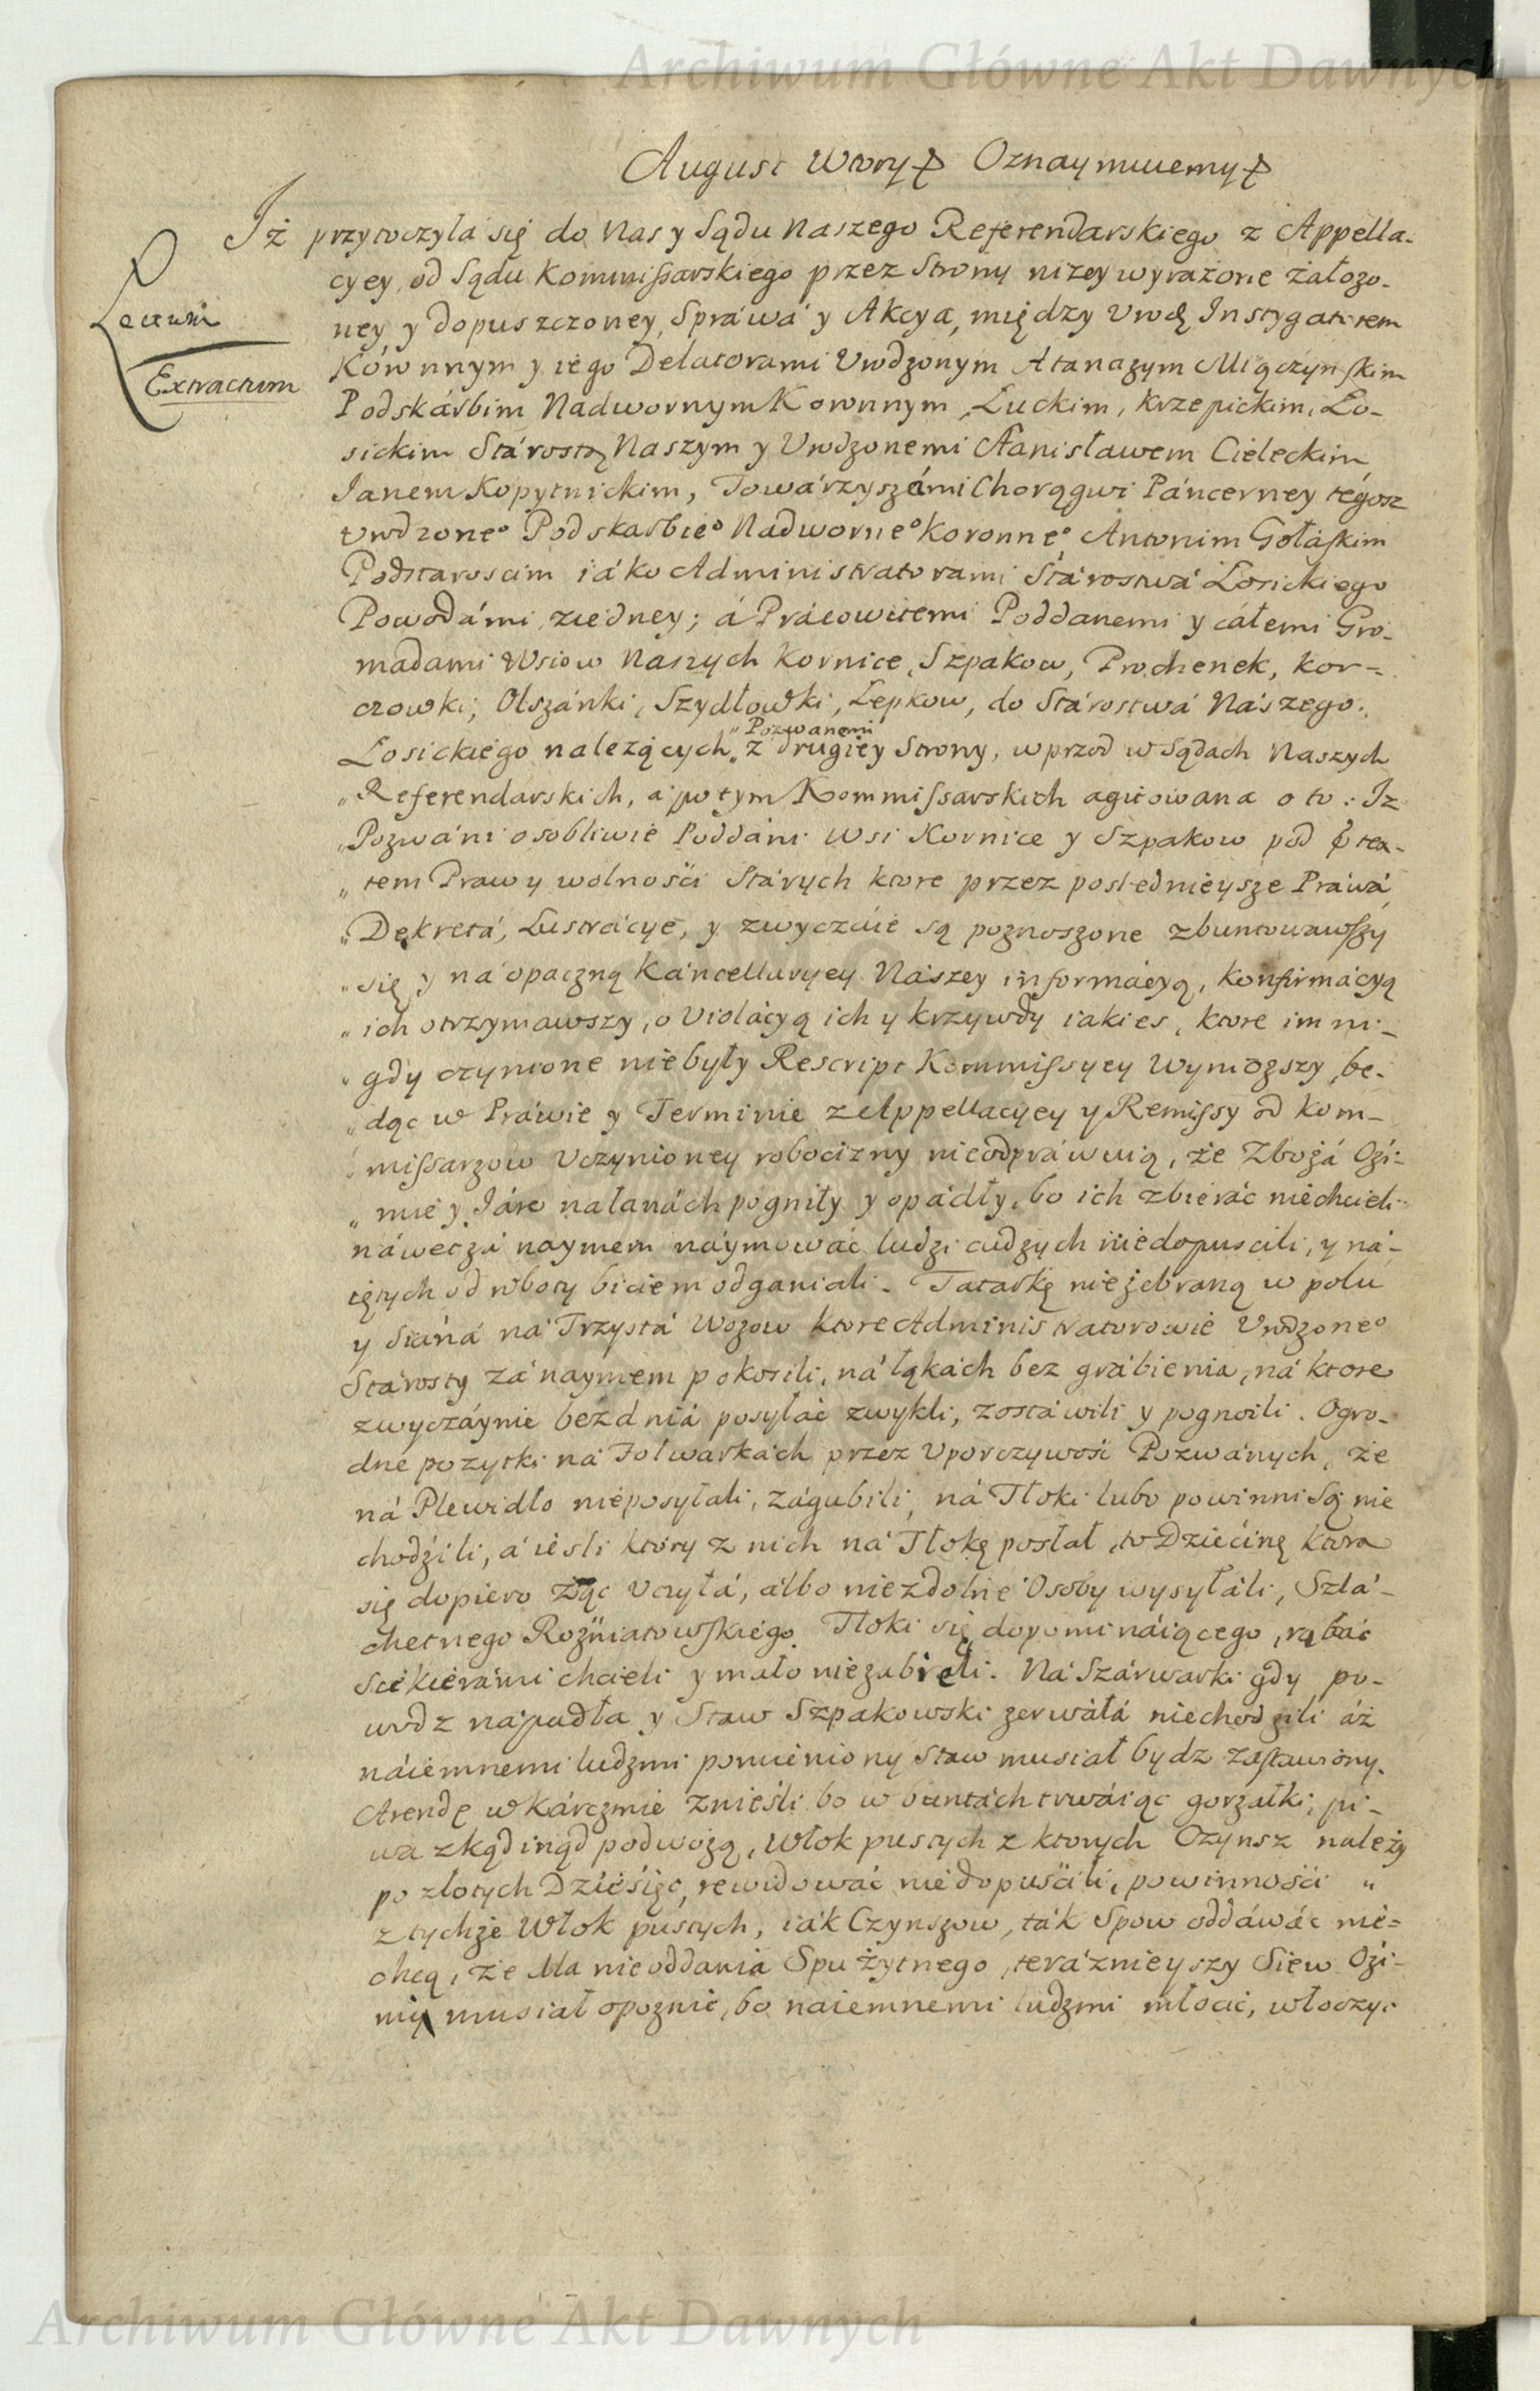 Archiwum Główne Akt Dawnych
August Wtory Oznaymuiemy
Lectum
Extractum
Iż przytoczyla się do Nas y Sądu Naszego Referendarskiego z Appella-
cyey od Sądu Kommissarskiego przez Strony nizey wyrażone załozo-
ney y dopuszczoney, Spráwá y Akcya, między Urodz Instygatorem
Koronnym y iego Delatorami Urodzonym Atanazym Miączynskim
Podskárbim Nadwornym Koronnym, Łuckim, Krzepickim, Ło-
sickim Stárostą Naszym y Urodzonemi Stanisławem Cieleckim
Ianem Kopytnickim, Towárzyszámi Chorągwi Páncerney tegosz
Urodzoneo Podskarbieo Nadworneo Koronneo, Antonim Gołáskim
Podstaroscim iáko Administratorami Stárostwá Łosickiego
Powodámi z iedney; á Prácowitemi Poddanemi y całemi Gro-
madami Wsiow Naszych Kornice, Szpakow, Prochenek, Kor-
czowki, Olszánki, Szydłowki, Łepkow, do Stárostwá Nászego
Łosickiego nalezących Pozwanemi z drugiey Strony, wprzod w Sądach Naszych
Referendarskich, a potym Kommissarskich agitowana o to: Iz
Pozwáni osobliwie Poddáni Wsi Kornice y Szpakow pod prætex-
tem Praw y wolności Stárych ktore przez poslednieysze Práwá,
Dekretá, Lustrácye, y zwyczáie są poznoszone zbuntowawszy
się y ná opaczną Káncellaryey Nászey informácyą, konfirmácyą
ich otrzymawszy, o Violácyą ich y krzywdy iakies, ktore im ni-
gdy czynione niebyły Rescript Kommissyey Wyniozszy, bę-
dąc w Práwie y Terminie z Appellacyey y Remissy od Kom-
missarzow Uczynioney robocizny nieodpráwuią, że Zbożá Ozi-
mie y Iáre nałanách pogniły y opádły, bo ich zbieráć niechcieli
náwet zá naymem náymowáć ludzi cudzych niedopuscili, y ná-
iętych od roboty biciem odganiali. Tatarkę niezebraną w polu
y Siáná ná Trzystá Wozow ktore Administratorowie Urodzoneo
Stárosty zá naymem pokosili, ná łąkách bez grábienia, ná ktore
zwyczáynie bezdniá posyłáć zwykli, zostáwili y pognoili. Ogro-
dne pozytki ná Folwarkách przez Uporczywość Pozwánych, że
ná Plewidło nieposyłali, zágubili, ná Tłoki lubo powinni Są nie
chodzili, á iesli ktory z nich ná Tłokę posłał, to Dziecinę ktora
się dopiero żąc Uczyłá, álbo niezdolne Osoby wysyłáli, Szlá-
chetnego Rozniatowskiego Tłoki się dopomináiącego, rąbać
Siekierámi chcieli y mało niezabieli. Ná Szárwarki gdy po-
wodz nápadła y Staw Szpakowski zerwáłá niechodzili áż
náiemnemi ludzmi pomieniony Staw musiał bydz zastawiony.
Arendę w Kárczmie znieśli bo w buntách trwáiąc gorzałki, pi-
wa zkądinąd podwożą, Włok pustych z ktorych Czynsz należy
po złotych Dziesięć, rewidowáć niedopuścili, powinności
z tychże Włok pustych, iák Czynszow, ták Spow oddáwáć nie-
chcą, że dla nieoddania Spu żytnego, teráznieyszy Siew Ozi-
my musiał opoznić, bo naiemnemi ludzmi młocić, włoczyć
Archiwum Główne Akt Dawnych